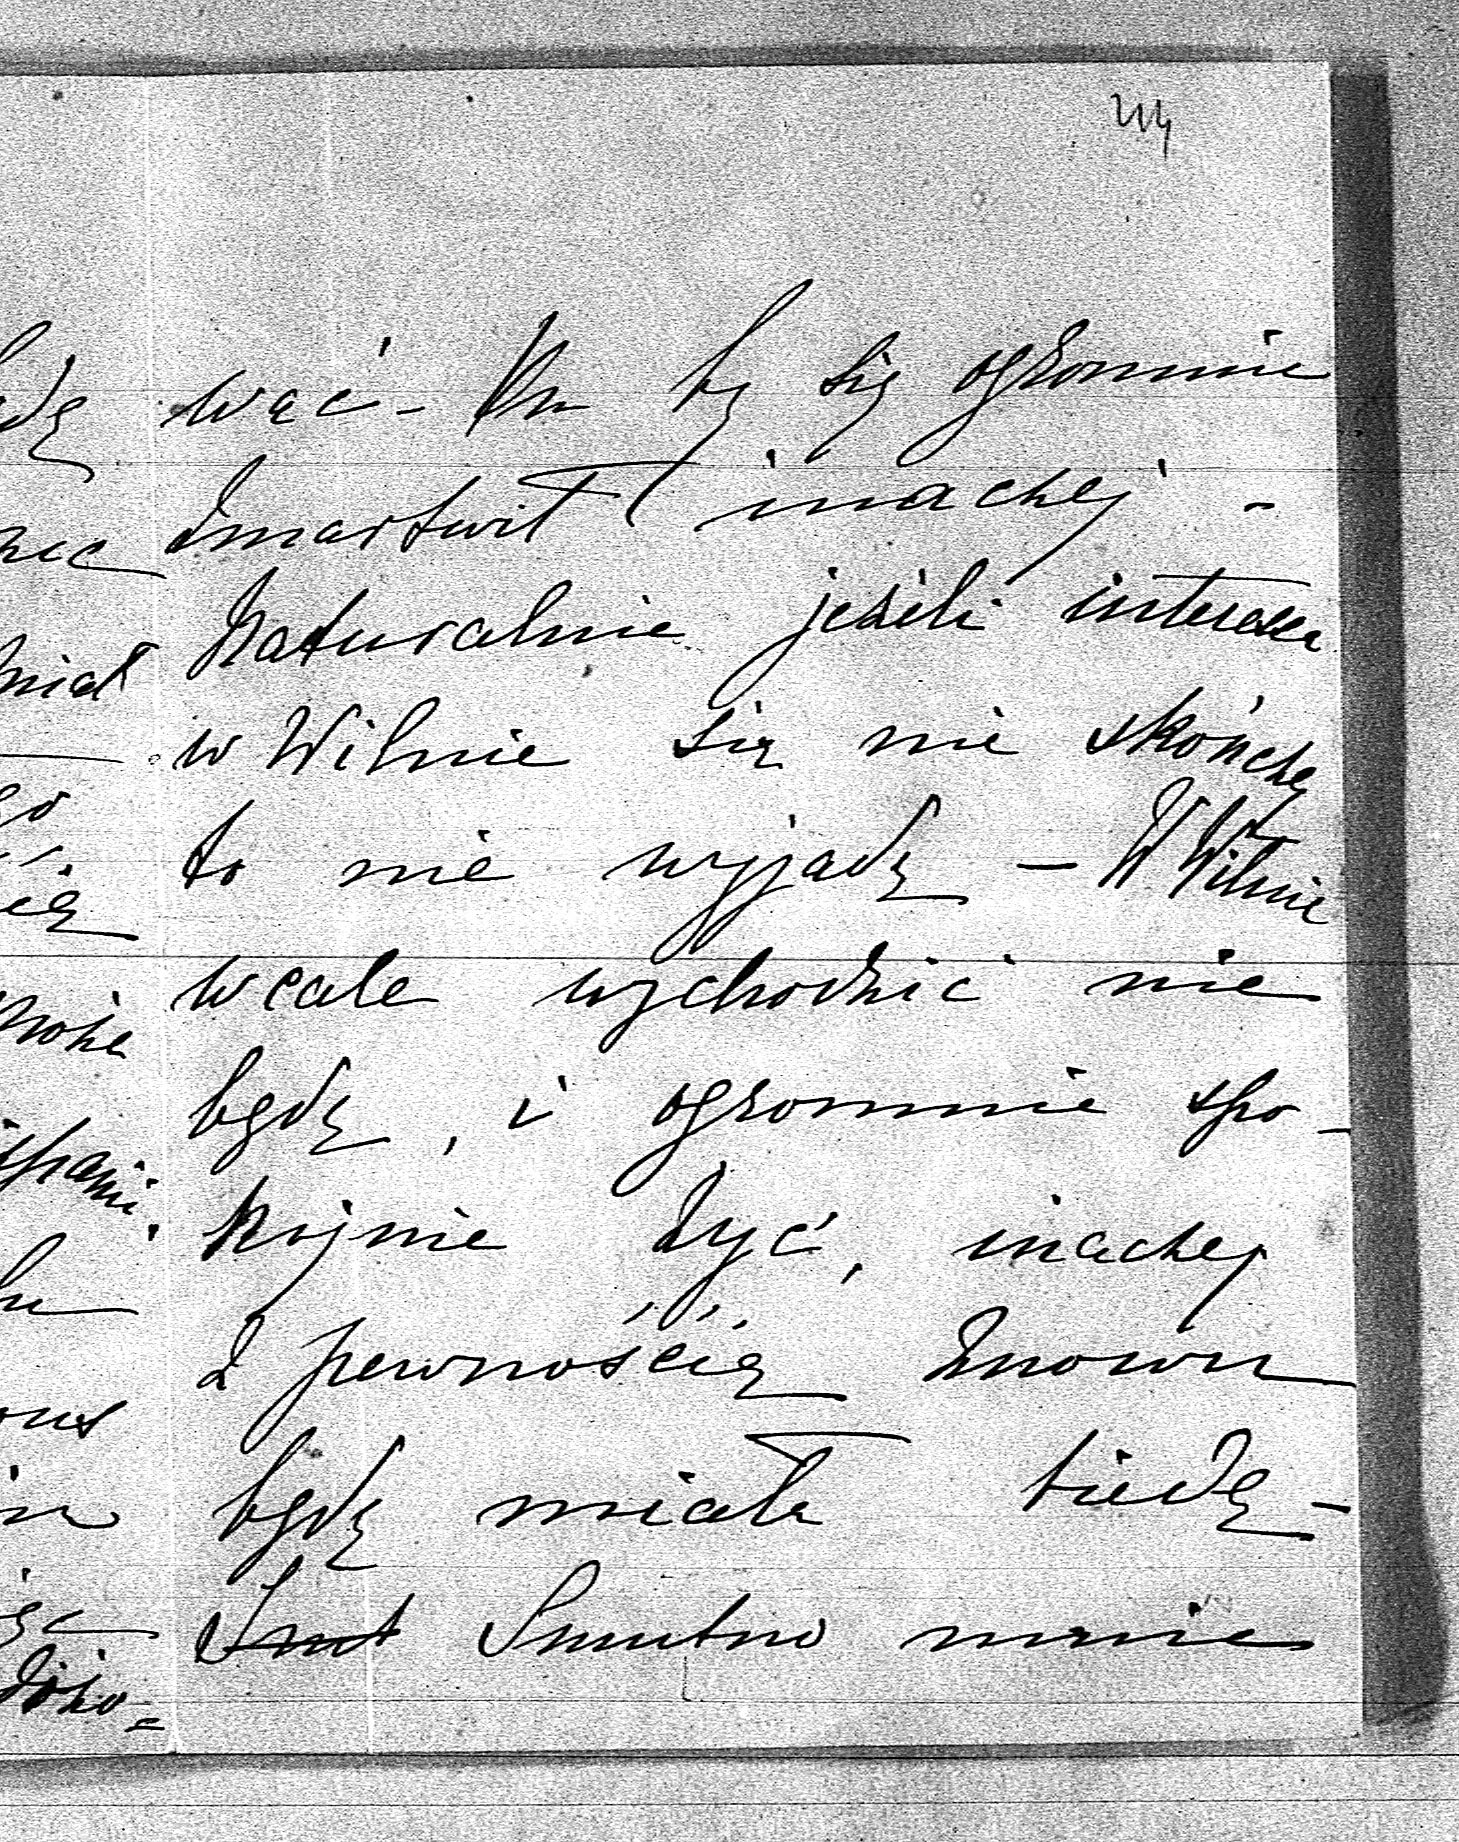 244
wać - On by się ogromnie
zmartwił inaczej -
Naturalnie jeżeli interesa
w Wilnie się nie skończą
to nie wyjadę - W Wilnie
wcale wychodzić nie
będę, i ogromnie spo-
kojnie żyć, inaczej
z pewnością znowu
będę miała biedę -
Smut Smutno mnie